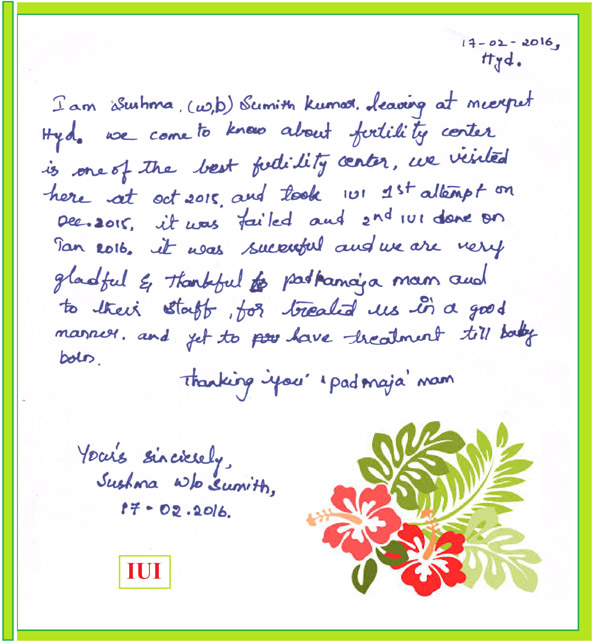 17-02-2016,
Hyd.
I am Sushma, (w/o) Sumith Kumar. leaving at meerpet
Hyd. we come to know about fertility center
is one of the best fertility center, we visited
here at oct 2015, and took IUI 1st attempt on
Dec. 2015, it was failed and 2nd IUI done on
Jan 2016. it was sucessful and we are very
gladful & thankful to padmamaja mam and
to their staff, for treated us in a good
manner. and yet to have treatment till baby
born.
Thanking 'you' 'padmaja' mam
Your's sincerely,
Sushma w/o Sumith,
17-02-2016.
IUI